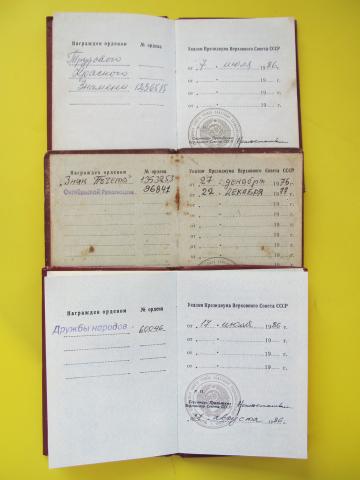 Награжден орденом № ордена
Трудового
Красного
Знамени 1236515
Указом Президиума Верховного Совета СССР
от „ 7 “ июля 1986 г.
от „ “ 19 г.
от „ “ 19 г.
от „ “ 19 г.
Секретарь Президиума
Верховного Совета СССР
Награжден орденом № ордена
"Знак Почета" 1353253
Октябрьской Революции 96841
Указом Президиума Верховного Совета СССР
от „ 27 “ декабря 1976 г.
от „ 22 “ декабря 1977 г.
от „ “ 19 г.
от „ “ 19 г.
от „ “ 19 г.
Награжден орденом № ордена
Дружбы народов 60046
Указом Президиума Верховного Совета СССР
от „ 17 “ июля 1986 г.
от „ “ 19 г.
от „ “ 19 г.
от „ “ 19 г.
Секретарь Президиума
Верховного Совета СССР
„ 27 “ августа 1986 г.